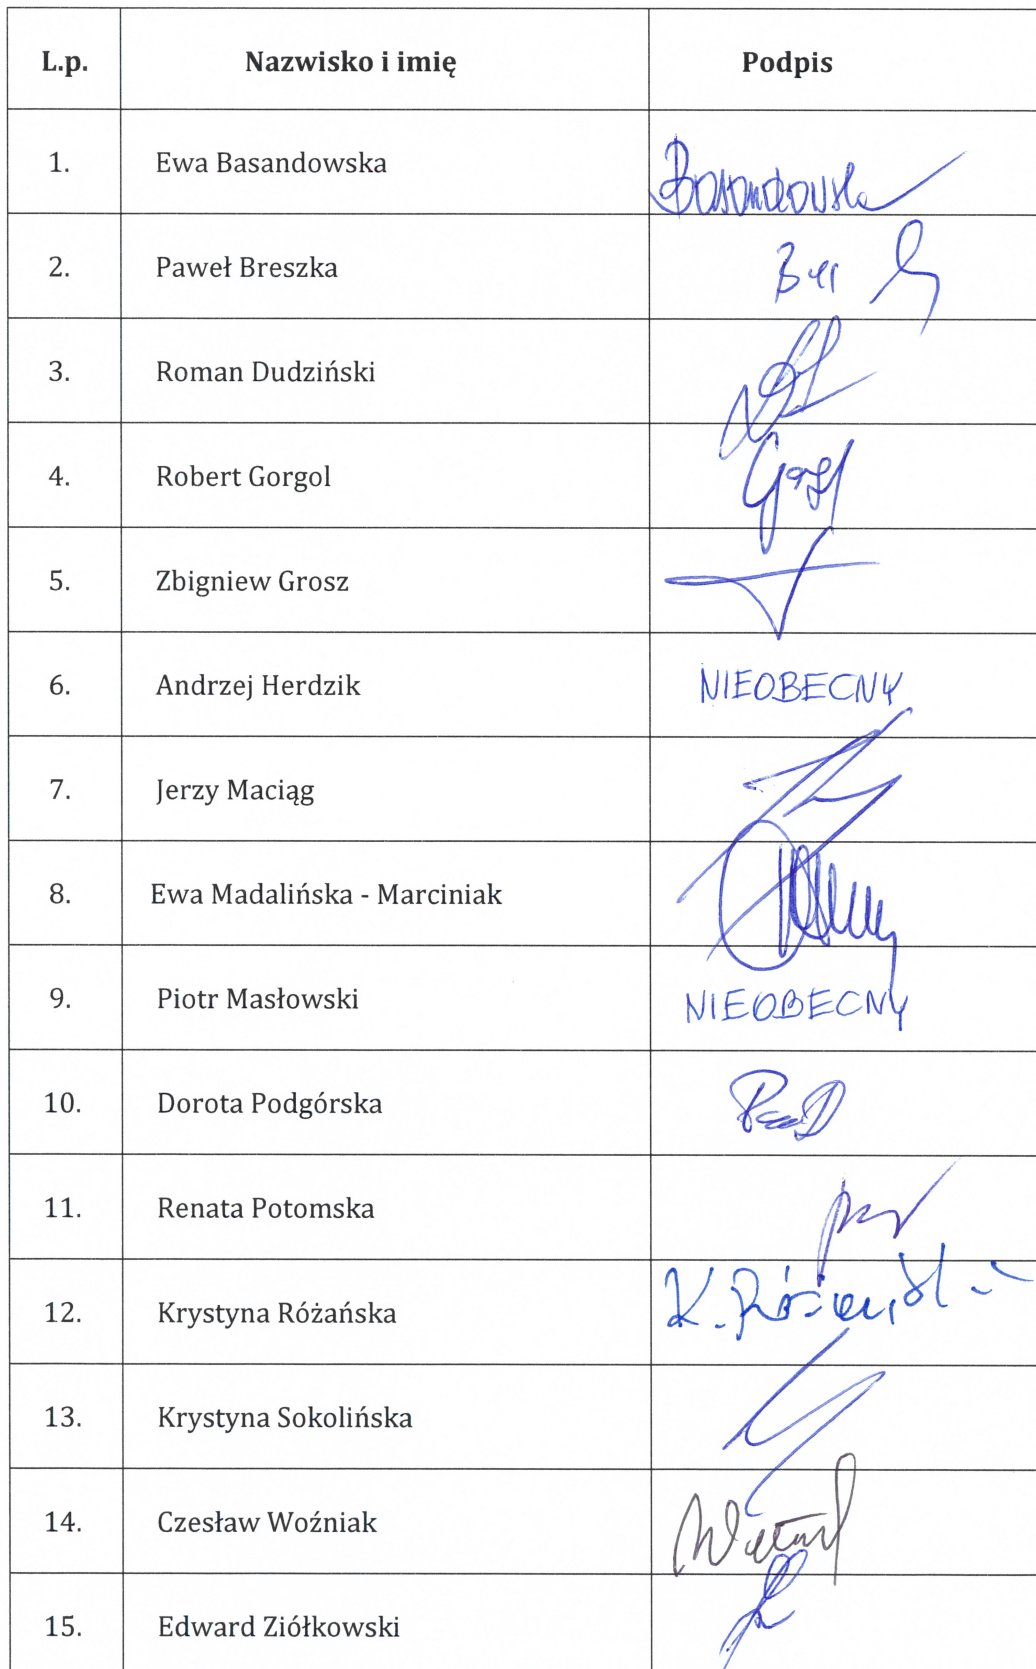 L.p. Nazwisko i imię Podpis
1. Ewa Basandowska Basandowska
2. Paweł Breszka
3. Roman Dudziński
4. Robert Gorgol
5. Zbigniew Grosz
6. Andrzej Herdzik NIEOBECNY
7. Jerzy Maciąg
8. Ewa Madalińska - Marciniak
9. Piotr Masłowski NIEOBECNY
10. Dorota Podgórska
11. Renata Potomska
12. Krystyna Różańska
13. Krystyna Sokolińska
14. Czesław Woźniak
15. Edward Ziółkowski